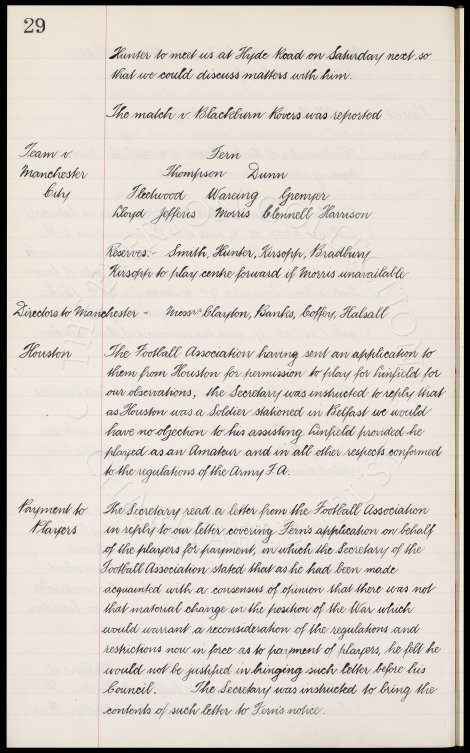 29
Hunter to meet us at Hyde Road on Saturday next so
that we could discuss matters with him.
The match v Blackburn Rovers was reported
Team v
Manchester
City
Fern
Thompson Dunn
Fleetwood Wareing Grenyer
Lloyd Jefferis Morris Clennell Harrison
Reserves:- Smith, Hunter, Kirsopp, Bradbury
Kirsopp to play centre forward if Morris unavailable
Directors to Manchester - Messrs Clayton, Banks, Coffey, Halsall
Houston
The Football Association having sent an application to
them from Houston for permission to play for Linfield for
our observations, the Secretary was instructed to reply that
as Houston was a Soldier stationed in Belfast we would
have no objection to his assisting Linfield provided he
played as an Amateur and in all other respects conformed
to the regulations of the Army F.A.
Payment to
Players
The Secretary read a letter from the Football Association
in reply to our letter covering Fern's application on behalf
of the players for payment, in which the Secretary of the
Football Association stated that as he had been made
acquainted with a consensus of opinion that there was not
that material change in the position of the War which
would warrant a reconsideration of the regulations and
restrictions now in force as to payment of players, he felt he
would not be justified in bringing such letter before his
Council. The Secretary was instructed to bring the
contents of such letter to Fern's notice.